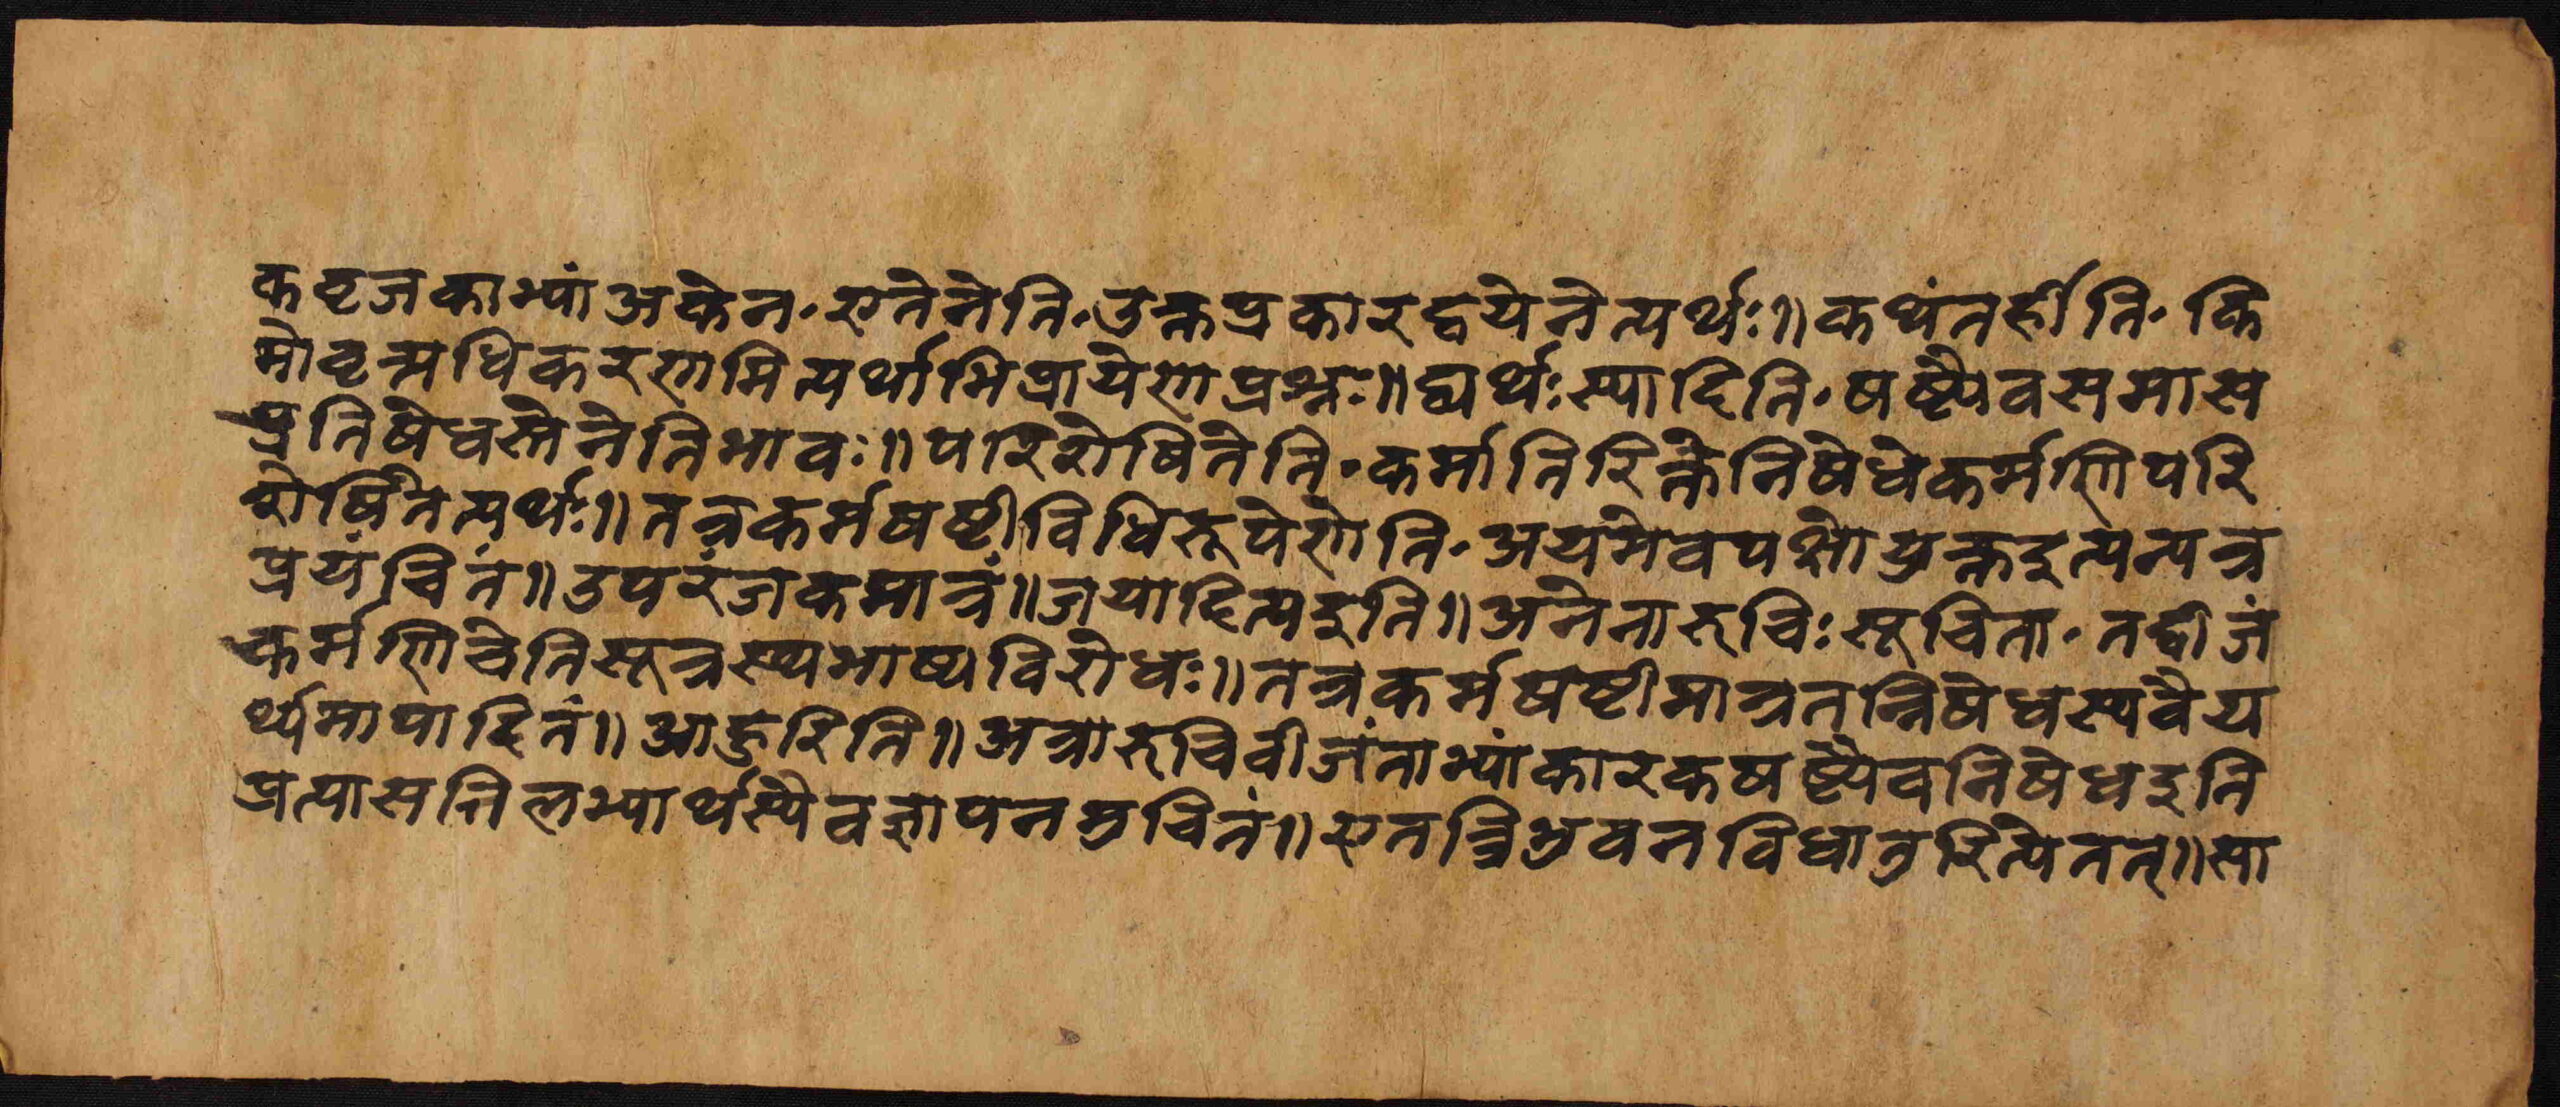 कवृजकाभ्यां अकेन॰ एतेनेति॰ उक्तप्रकारद्वयेनेत्यर्थः॥ कथंतर्हीति॰ कि
मोवृत्मधिकरणमित्यर्थाभिप्रायेणप्रश्नः॥ द्यर्थःस्यादिति॰ षष्ठ्यैवसमास
प्रतिषेधस्तेनेतिभावः॥ परिशेषितेति॰ कर्मातिरिक्तेनिषेधेकर्मणिपरि
शेषितेत्यर्थः॥ तत्रकर्मषष्ठीविधिरूपेणेति॰ अयमेवपक्षोयुक्तइत्यन्यत्र
प्रपंचितं॥ उपरंजकमात्रं॥ जयादित्यइति॥ अनेनारुचिःसूचिता॰ तद्बीजं
कर्मणिचेतिसूत्रस्थभाष्यविरोधः॥ तत्रकर्मषष्ठीमात्रतन्निषेधस्यवैय
र्थ्यमापादितं॥ आहुरिति॥ अत्रारुचिबीजंताभ्यांकारकषष्ठ्यैवनिषेधइति
प्रत्यासत्तिलभ्यार्थस्यैवज्ञापनमुचितं॥ एतत्त्रिभुवनविधातुरित्येतत्॥ सा